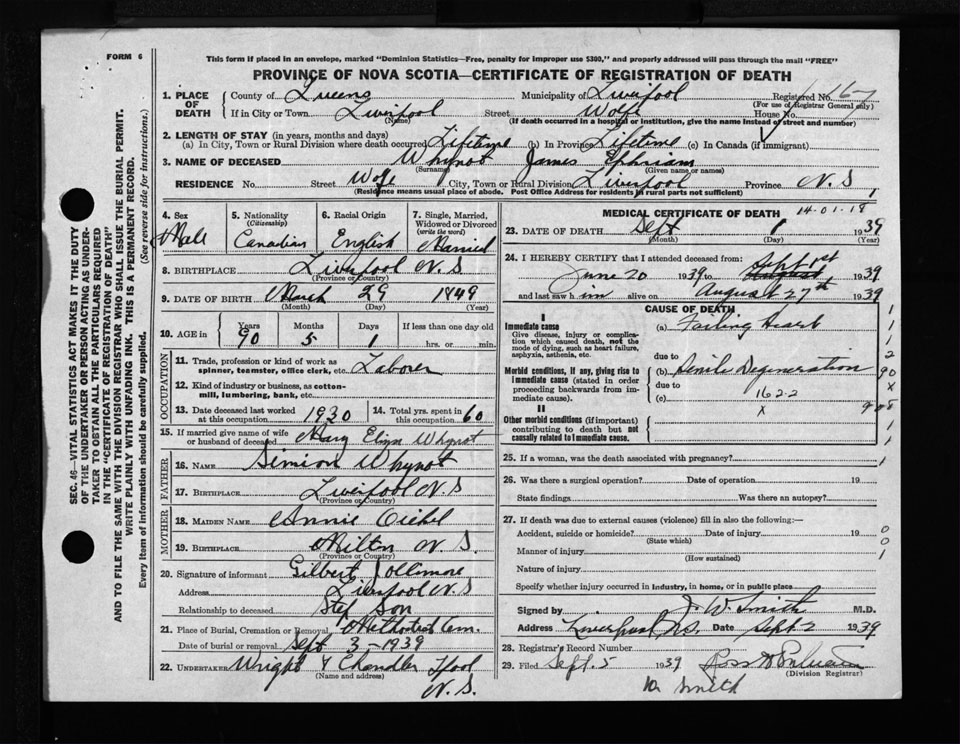 FORM 6
This form if placed in an envelope, marked "Dominion Statistics—Free, penalty for improper use $300," and properly addressed will pass through the mail "FREE"
PROVINCE OF NOVA SCOTIA—CERTIFICATE OF REGISTRATION OF DEATH
1. PLACE OF DEATH
County of Queens Municipality of Liverpool Registered No. 167
(For use of Registrar General only)
If in City or Town Liverpool Street Wolfe House No.
(Name) (If death occurred in a hospital or institution, give the name instead of street and number)
2. LENGTH OF STAY (in years, months and days)
(a) In City, Town or Rural Division where death occurred Lifetime (b) In Province Lifetime (c) In Canada (if immigrant)
3. NAME OF DECEASED Whynot James Ephriam
(Surname) (Given name or names)
RESIDENCE No. Street Wolfe City, Town or Rural Division Liverpool Province N.S
(Residence means usual place of abode. Post Office Address for residents in rural parts not sufficient)
SEC. 46—VITAL STATISTICS ACT MAKES IT THE DUTY
OF THE UNDERTAKER OR PERSON ACTING AS UNDER-
TAKER TO OBTAIN ALL THE PARTICULARS REQUIRED
IN THE "CERTIFICATE OF REGISTRATION OF DEATH"
AND TO FILE THE SAME WITH THE DIVISION REGISTRAR WHO SHALL ISSUE THE BURIAL PERMIT.
WRITE PLAINLY WITH UNFADING INK. THIS IS A PERMANENT RECORD.
Every item of information should be carefully supplied. (See reverse side for instructions.)
4. Sex Male
5. Nationality (Citizenship) Canadian
6. Racial Origin English
7. Single, Married, Widowed or Divorced (write the word) Married
8. BIRTHPLACE Liverpool N.S
(Province or Country)
9. DATE OF BIRTH March 29 1849
(Month) (Day) (Year)
10. AGE in Years 90 Months 5 Days 1 If less than one day old
hrs. or min.
OCCUPATION
11. Trade, profession or kind of work as
spinner, teamster, office clerk, etc. Laborer
12. Kind of industry or business, as cotton-
mill, lumbering, bank, etc.
13. Date deceased last worked at this occupation 1930
14. Total yrs. spent in this occupation 60
15. If married give name of wife or husband of deceased Mary Eliza Whynot
FATHER
16. NAME Simion Whynot
17. BIRTHPLACE Liverpool N.S
(Province or Country)
MOTHER
18. MAIDEN NAME Annie
19. BIRTHPLACE Milton N.S.
(Province or Country)
20. Signature of informant Gilbert Jollimore
Address Liverpool N.S
Relationship to deceased Step Son
21. Place of Burial, Cremation or Removal Methodist Cem.
Date of burial or removal Sept 3-1939
22. UNDERTAKER Wright & Chandler Lpool
(Name and address) N.S.
MEDICAL CERTIFICATE OF DEATH 14-01-19
23. DATE OF DEATH Sept 1 1939
(Month) (Day) (Year)
24. I HEREBY CERTIFY that I attended deceased from:
June 20 1939 to Sept 1st August 1939
and last saw him alive on August 27th 1939
CAUSE OF DEATH
I
Immediate cause
Give disease, injury or complication which caused death, not the mode of dying, such as heart failure, asphyxia, asthenia, etc.
(a) Failing Heart
due to
Morbid conditions, if any, giving rise to immediate cause (stated in order proceeding backwards from immediate cause).
(b) Senile Degeneration
due to
(c) 162-2
x
II
Other morbid conditions (if important) contributing to death but not causally related to immediate cause.
1
1
2
90
x
1
1
25. If a woman, was the death associated with pregnancy?
26. Was there a surgical operation? Date of operation 19
State findings Was there an autopsy?
27. If death was due to external causes (violence) fill in also the following:—
Accident, suicide or homicide? Date of injury 19
(State which)
Manner of injury
(How sustained)
Nature of injury
Specify whether injury occurred in industry, in home, or in public place
0
0
1
Signed by J. W. Smith M.D.
Address Liverpool N.S. Date Sept 2 1939
28. Registrar's Record Number
29. Filed Sept. 5 1939
(Division Registrar)
Smith